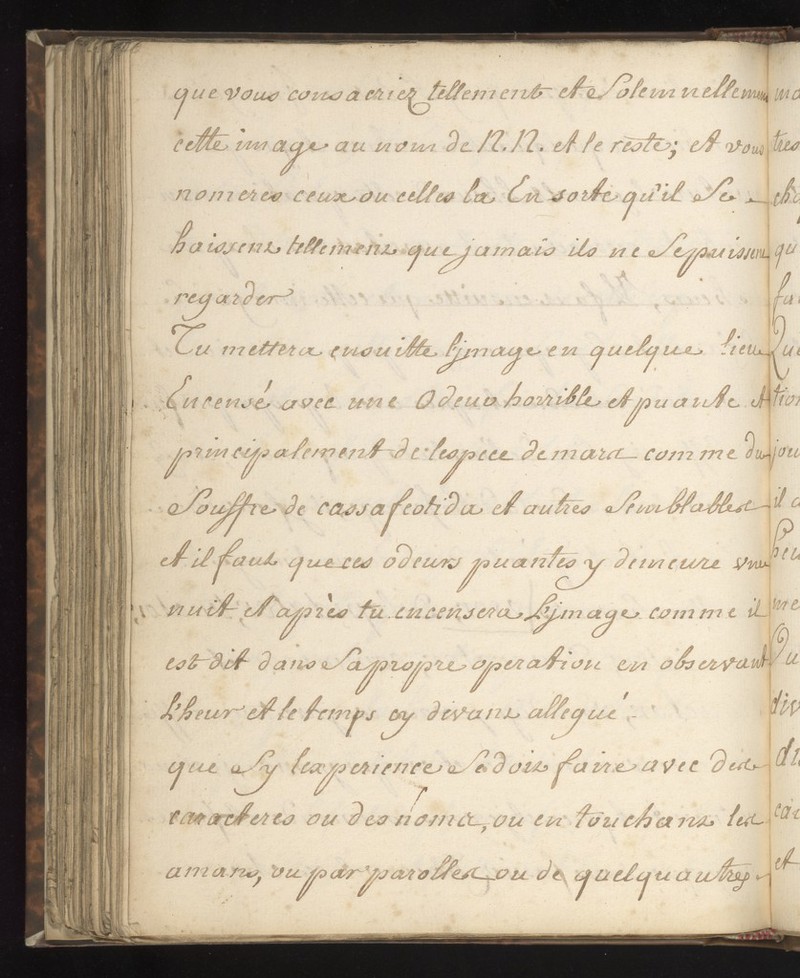 que vous consacriez tellement et Solemnellement
cette image au nom de N.N. et le reste; et vous
nomeres ceux ou celles la En sorte qu'il Se
haissent tellement que jamais ils ne Sepuissent
regarder
Tu mettera ensuitte l'jmage en quelque lieu
Encensé avec une Odeur horrible et puante et
principalement de lespece de mars comme du
Souffre de cassafeotida et autres Semblables
et il faut que ces odeurs puantes y demeure vne
nuit et après tu encensera L'jmage comme il
est dit dans Sa propre operation en observant
L'heur et le temps cy devant allegué.
que Sy lexperience Se doit faire avec des
caracteres ou des noms, ou en touchant les
amans, ou par parolles ou de quelquautres